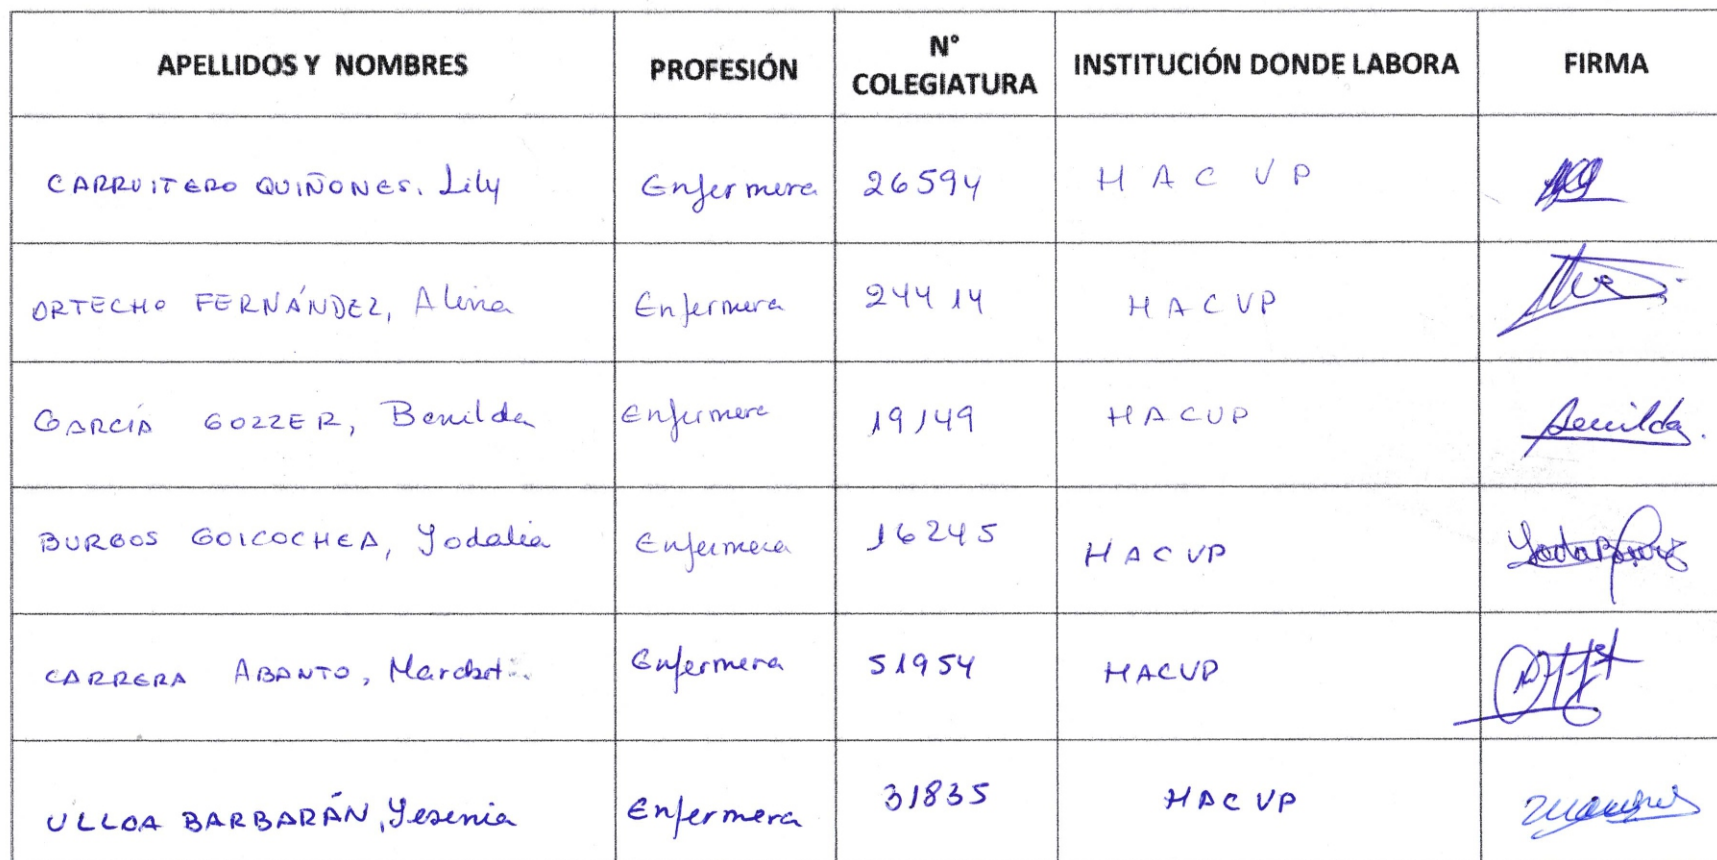 APELLIDOS Y NOMBRES PROFESIÓN N° COLEGIATURA INSTITUCIÓN DONDE LABORA FIRMA
CARRUITERO QUIÑONES. Lily Enfermera 26594 HACVP
ORTECHO FERNÁNDEZ, Alina Enfermera 24414 HACVP
GARCÍA GOZZER, Benilda Enfermera 19149 HACVP Benilda.
BURGOS GOICOCHEA, Yodalia Enfermera 16245 HACVP
CARRERA ABANTO, Enfermera 51954 HACVP
ULLOA BARBARÁN, Yesenia Enfermera 31835 HACVP